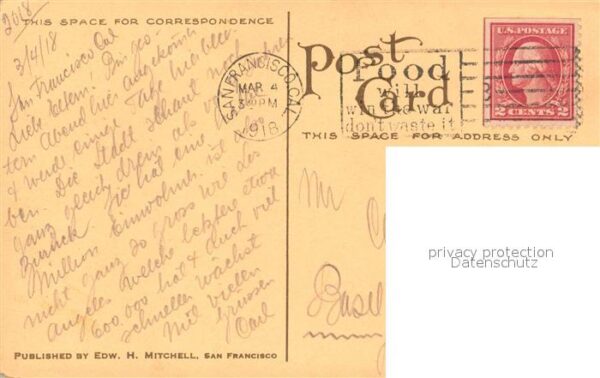 2018
THIS SPACE FOR CORRESPONDENCE
3/4/18
San Francisco Cal
Liebe Eltern! Bin ges-
tern Abend hier angekommen
& werde einen Tag hier blei-
ben. Die Stadt schaut noch
ganz gleich drein als vor
zurück. Sie hat eine
Million Einwohner, ist
nicht ganz so gross wie Los
Angeles welche letztere etwa
600.000 hat & auch viel
schneller wächst
Mit vielen
Grüssen
Carl
PUBLISHED BY EDW. H. MITCHELL, SAN FRANCISCO
Post Card
SAN FRANCISCO, CAL.
MAR 4
3 PM
1918
Food
will
win the war
don't waste it
U.S. POSTAGE
2 CENTS 2
THIS SPACE FOR ADDRESS ONLY
Mr
Basel
privacy protection
Datenschutz